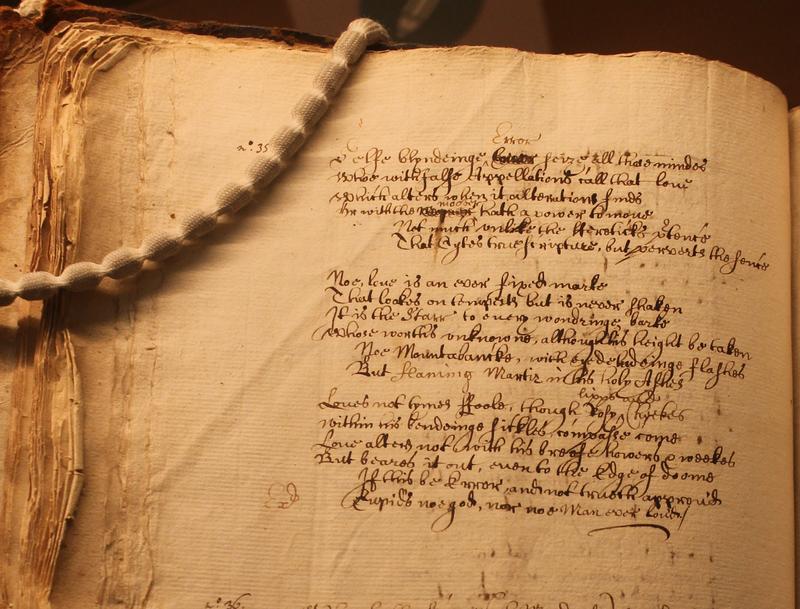 Error
n:o 35
Selfe blyndeinge seize all those mindes
Whoe with false Appellations call that love
Which alters when it alterations finds
moover
Or with the hath a power to move
Not much unlike the Hereticks p̱tence
That Cytes true scripture, but perverts the sence
Noe, love is an ever fixed marke
That lookes on tempests but is never shaken
It is the Starr to every wondringe barke
Whose worths unknowne, although his height be taken
Noe Mountabancke, with eyedeludeinge flashes
But flaming Martir in his holy Ashes
lipps and
Loues not tymes Foole, though Rosy Cheekes
within his bendeinge sickles compasse come
Loue alters not with his breife howers & weekes
But beares it out, even to the Edge of doome
If this be Error and not trueth approvd
Cupids noe god, nor noe Man ever loved
n:o 36